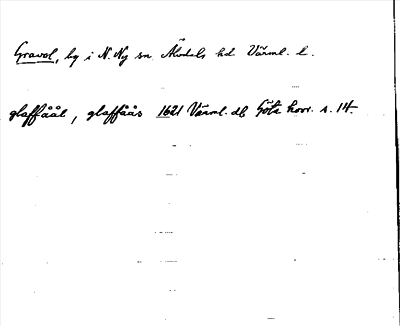 Gravol, by i N. Ny sn Älvdals hd Värml. l.
glaffåål, glaffåås 1621 Värml. db Göta hovr. s. 14.